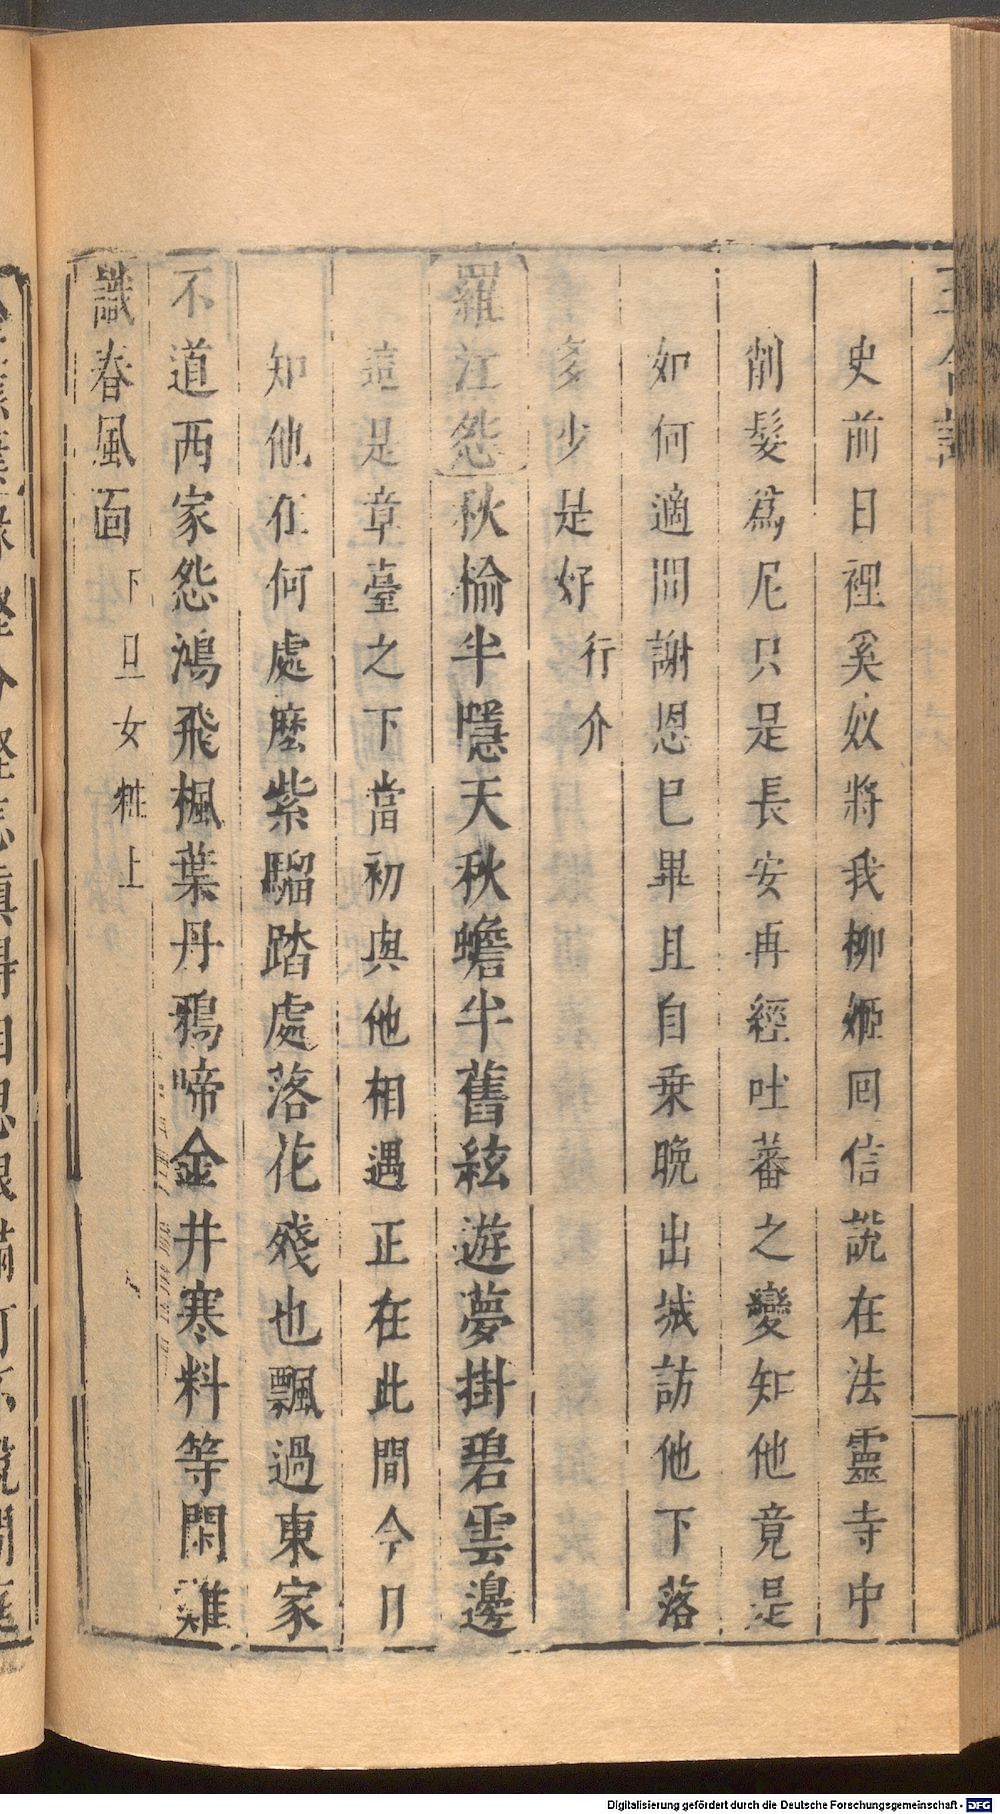 玉合記
史前日裡奚奴將我柳姬囘信說在法靈寺中
削髮爲尼只是長安再經吐蕃之變知他竟是
如何適間謝恩已畢且自乗晚出城訪他下落
多少是好 行介
羅江怨秋榆半隱天秋蟾半舊絃遊夢掛碧雲邊
這是章臺之下當初與他相遇正在此間今日
知他在何處麽紫騮踏處落花殘也飄過東家
不道西家怨鴻飛楓葉丹鴉啼金井寒料等閑難
識春風面 下 旦女粧上
Digitalisierung gefördert durch die Deutsche Forschungsgemeinschaft - DFG